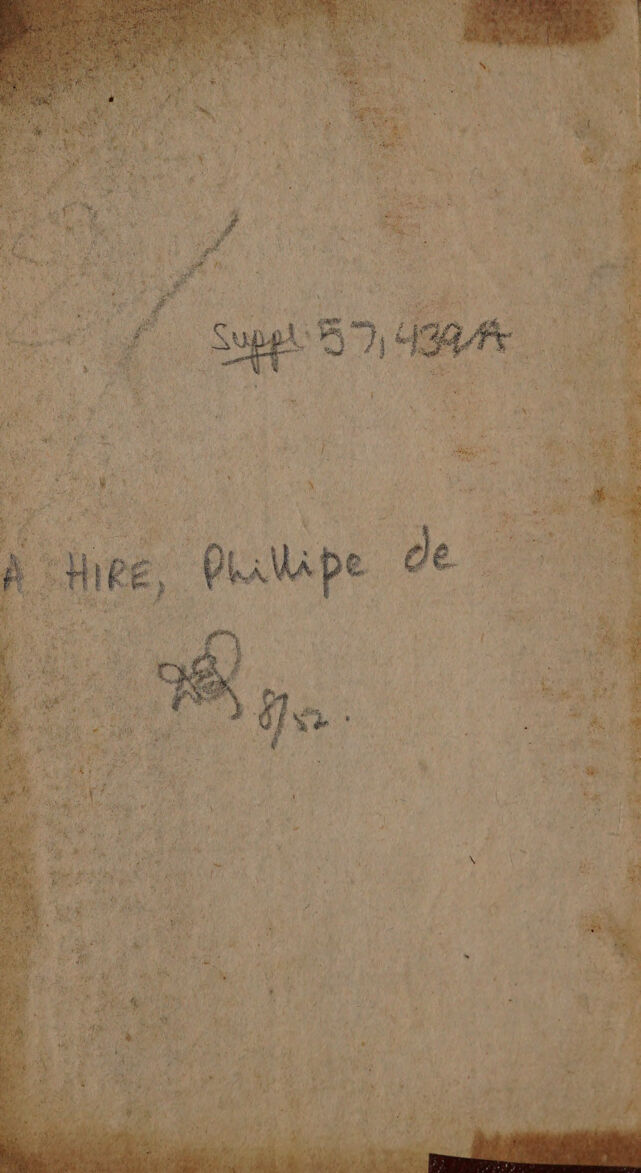 Suppl. 57,439/A
A HIRE, Phillipe de
8/52.